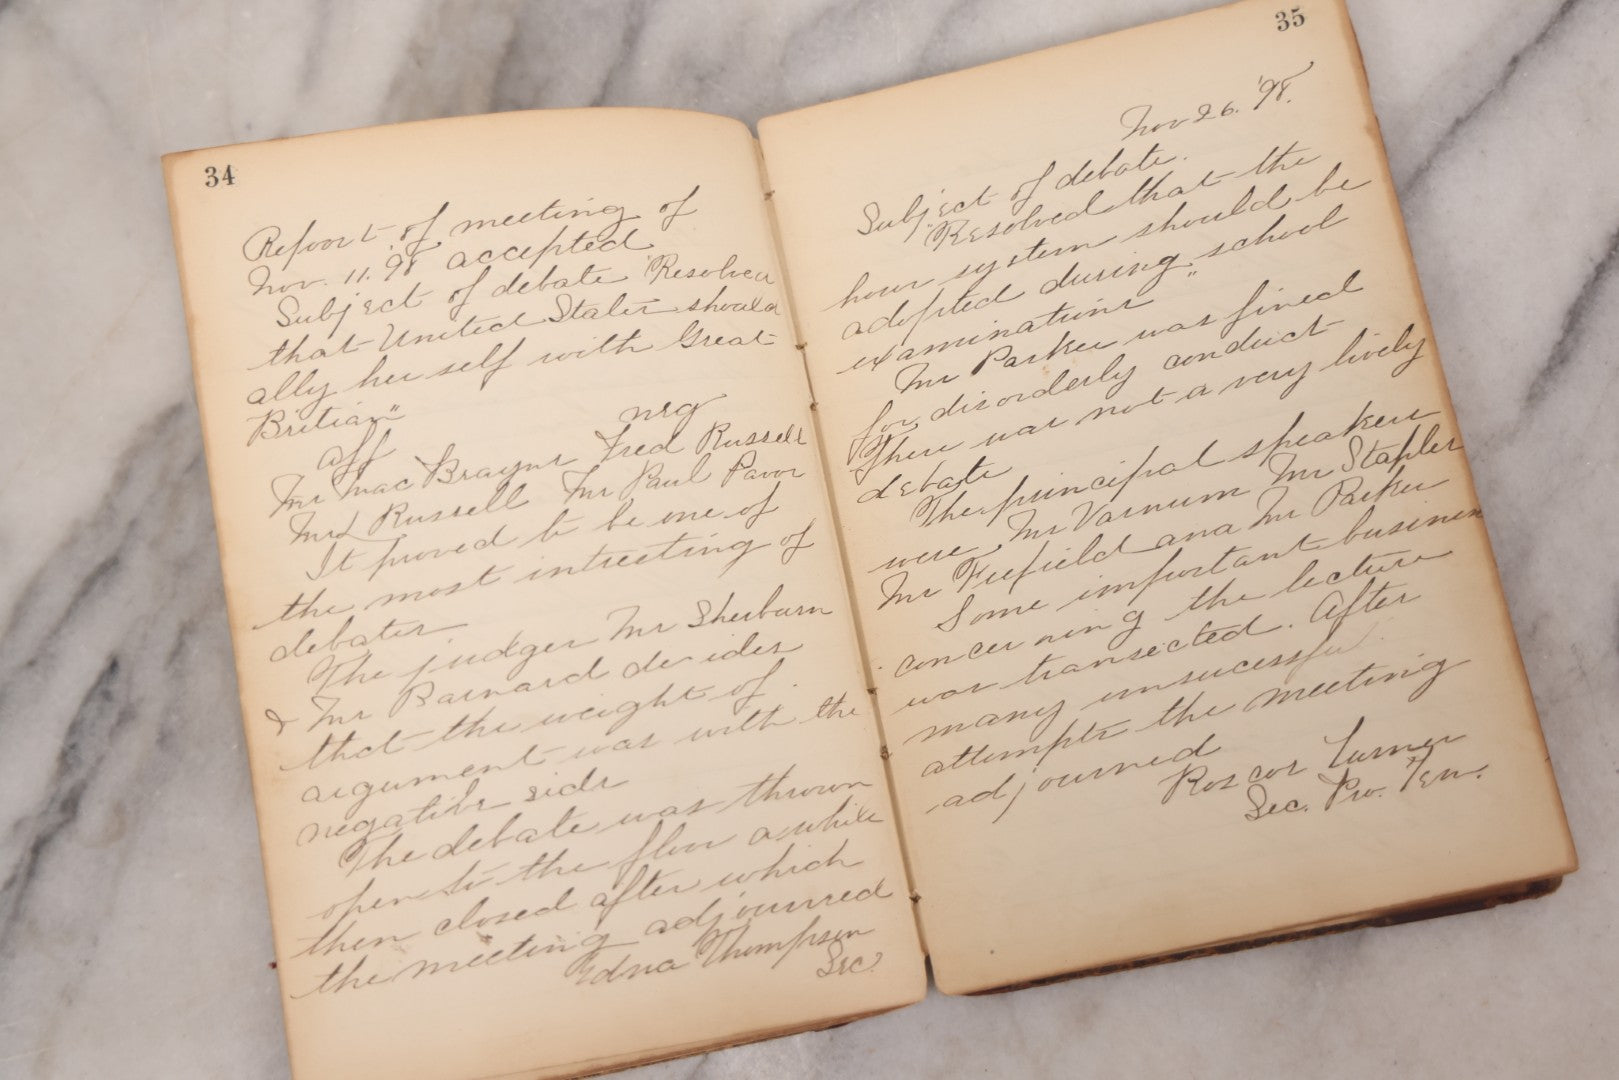 34
Report of meeting of
Nov. 11. 98 accepted
Subject of debate "Resolved
that United States should
ally her self with Great
Britian"
aff neg
Mr Mac Fred Russell
Mr L Russell Mr Paul
It proved to be one of
the most intresting of
debates
The judges Mr Sherburn
& Mr Barnard decides
that the weight of
argument was with the
negative side
The debate was thrown
open to the floor awhile
then closed after which
the meeting adjourned
Edna Thompson
Sec.
35
Nov 26. '98.
Subject of debate.
"Resolved that the
hour system should be
adopted during school
examinations"
Mr Parker was fined
for disorderly conduct
There was not a very lively
debate
The principal speakers
were Mr Varnum Mr Stapler
Mr Fiefield and Mr Parker
Some important business
concerning the lecture
was transected. After
many unsucessful
attempts the meeting
adjourned
Roscoe Turner
Sec. Pro. Tem.